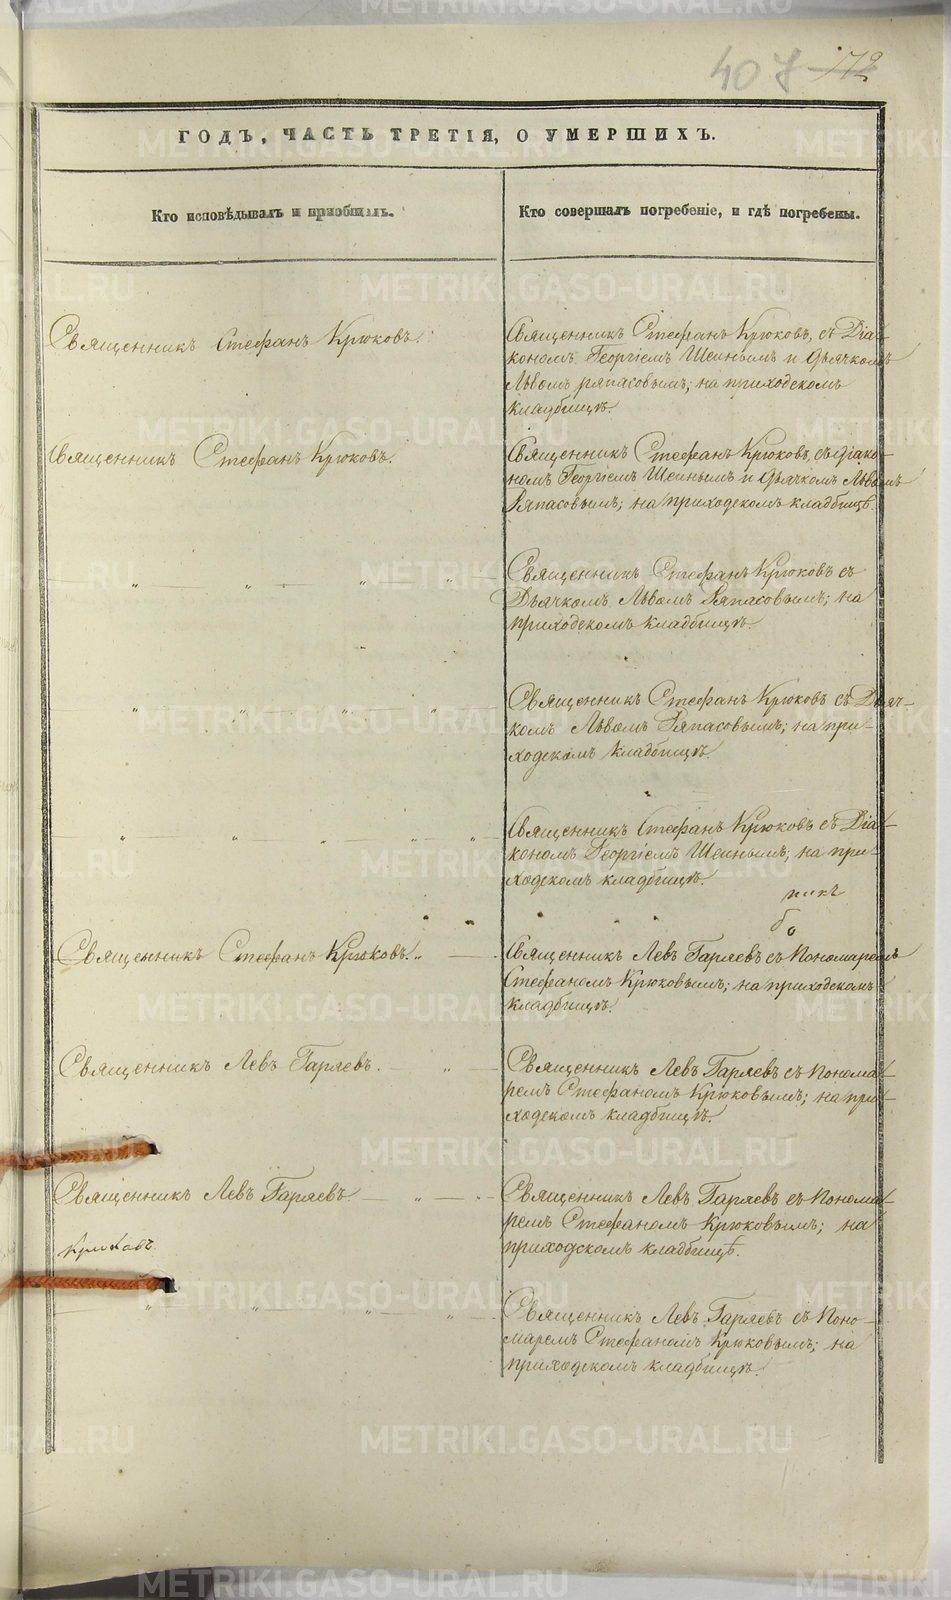 407 172
ГОДЪ, ЧАСТЬ ТРЕТІЯ, О УМЕРШИХЪ.
Кто исповѣдывалъ и приобщалъ.
Кто совершалъ погребеніе, и гдѣ погребены.
Священникъ Стефанъ Крюковъ.
Священникъ Стефанъ Крюковъ, съ Діа-
кономъ Георгіемъ Шеинымъ и дьячкомъ
Львомъ ряпасовымъ; на приходскомъ
кладбищѣ.
Священникъ Стефанъ Крюковъ.
Священникъ Стефанъ Крюковъ, съ діако-
номъ Георгіемъ Шеинымъ и дьячкомъ Львомъ
Ряпасовымъ; на приходскомъ кладбищѣ.
" " " "
Священникъ Стефанъ Крюковъ съ
Дьячкомъ Львомъ Ряпасовымъ; на
приходскомъ кладбищѣ.
" " " "
Священникъ Стефанъ Крюковъ съ Дьяч-
комъ Львомъ Ряпасовымъ; на при-
ходскомъ кладбищѣ.
" " " " "
Священникъ Стефанъ Крюковъ съ Діа-
кономъ Георгіемъ Шеинымъ; на при-
ходскомъ кладбищѣ.
Священникъ Стефанъ Крюковъ. "
Священникъ Левъ Гаряевъ съ Пономаремъ
Стефаномъ Крюковымъ; на приходскомъ
кладбищѣ.
Священникъ Левъ Гаряевъ. "
Священникъ Левъ Гаряевъ съ Понома-
ремъ Стефаномъ Крюковымъ; на при-
ходскомъ кладбищѣ.
Священникъ Левъ Гаряевъ " "
Священникъ Левъ Гаряевъ съ Понома-
ремъ Стефаномъ Крюковымъ; на
приходскомъ кладбищѣ.
Крюковъ
" " " "
Священникъ Левъ Гаряевъ съ Поно-
маремъ Стефаномъ Крюковымъ; на
приходскомъ кладбищѣ.
METRIKI.GASO-URAL.RU